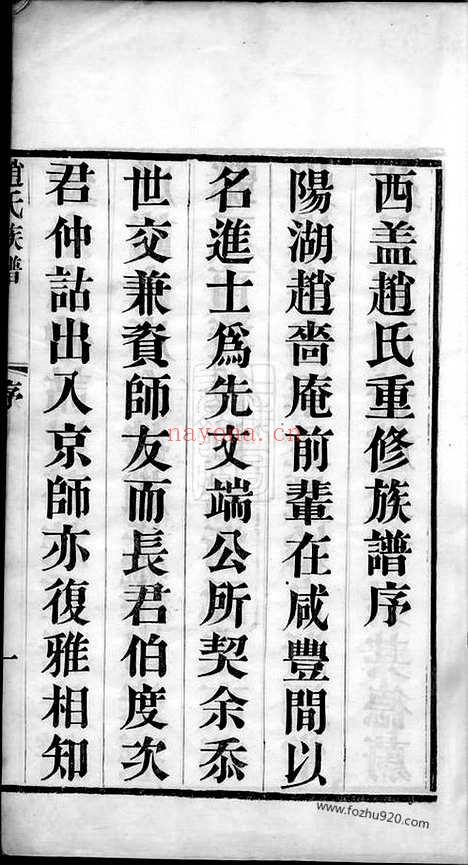 西盖趙氏重修族譜序
陽湖趙啬庵前輩在咸豐間以
名進士爲先文端公所契余忝
世交兼資師友而長君伯度次
君仲詁出入京師亦復雅相知
趙氏族譜 序 一
nayona.cn
www.fozhu920.com